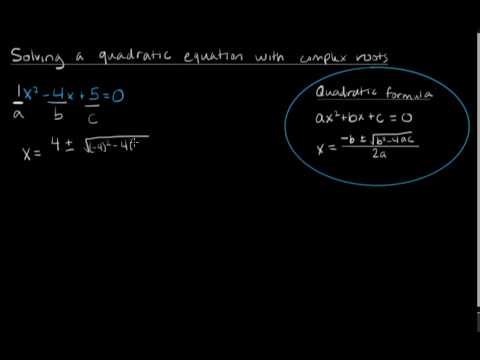 Solving a quadratic equation with complex roots
1x² - 4x + 5 = 0
a b c
x = 4 ± √(-4)² - 4(
Quadratic formula
ax² + bx + c = 0
x = -b ± √b² - 4ac / 2a